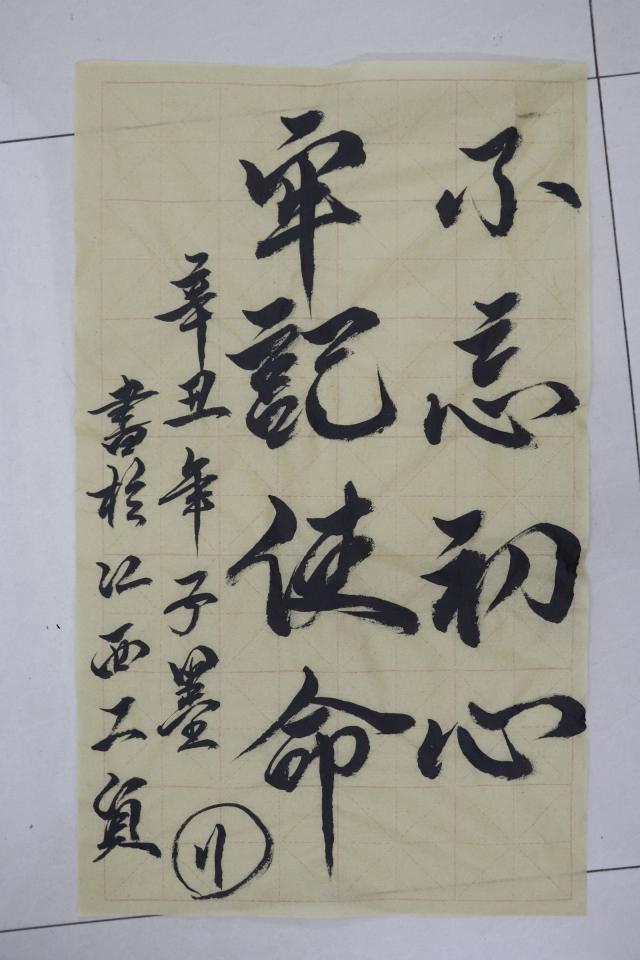 不忘初心
牢記使命
辛丑年予墨
書於江西工貿